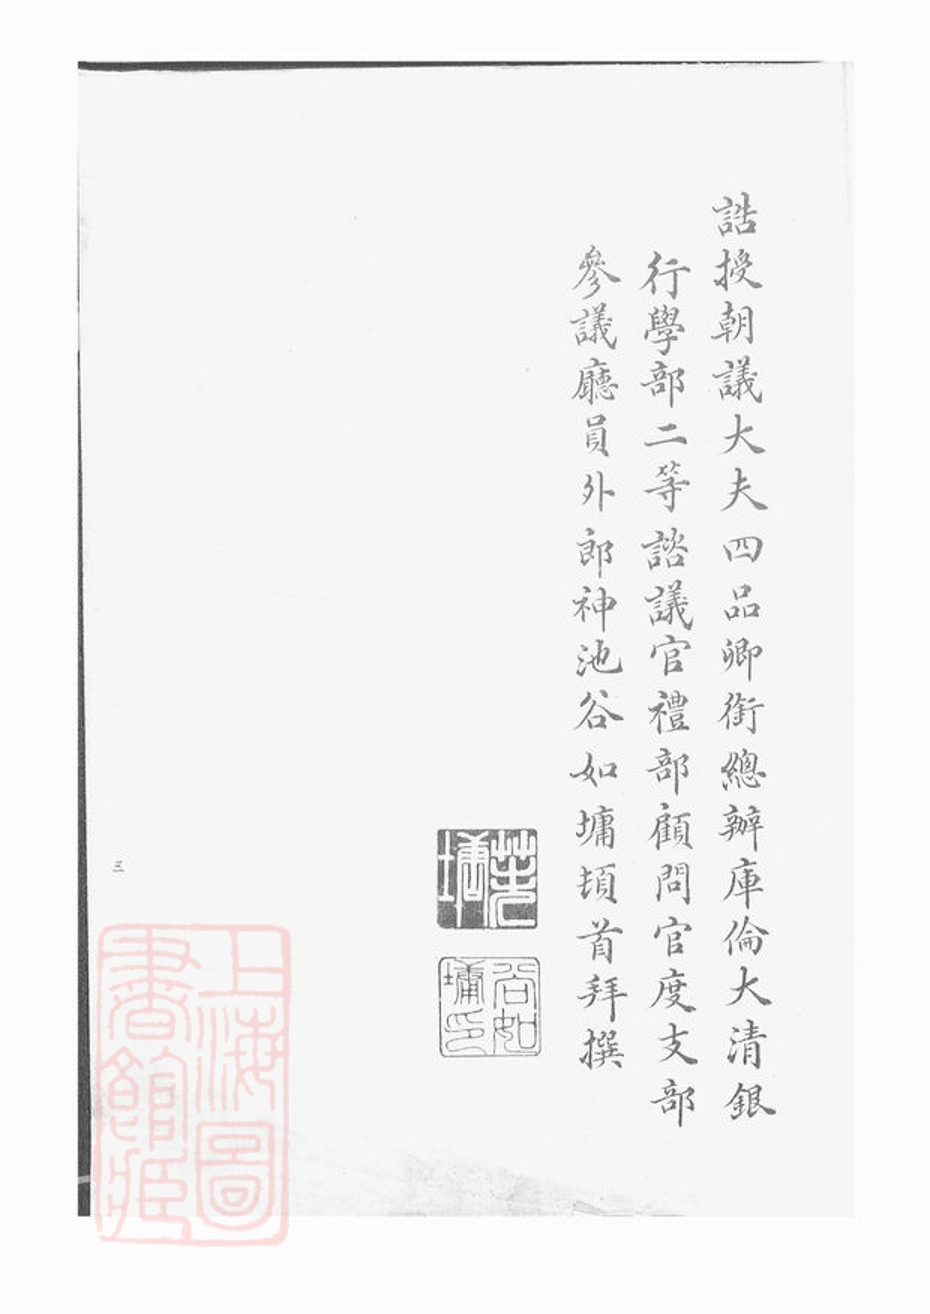 誥授朝議大夫四品卿銜總辦庫倫大清銀
行學部二等諮議官禮部顧問官度支部
參議廳員外郎神池谷如墉頓首拜撰
谷如墉印
三
上海圖書館藏